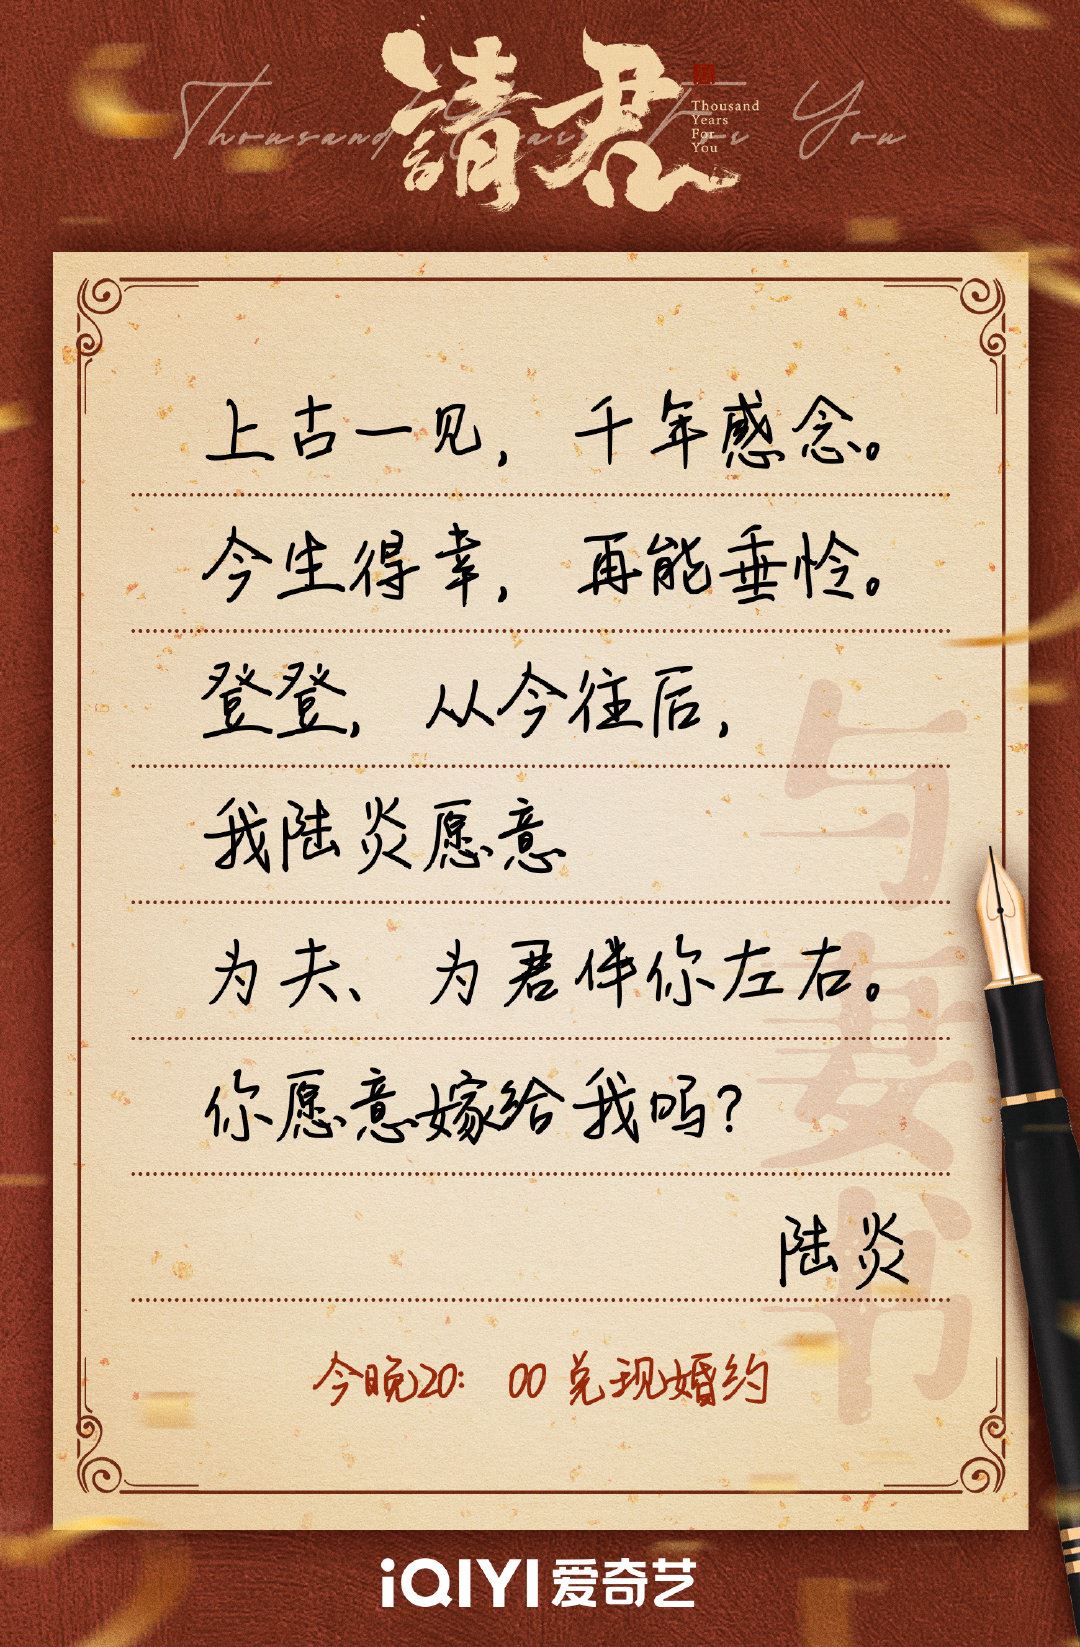 Thousand Years For You
請君
Thousand
Years
For
You
上古一见，千年感念。
今生得幸，再能垂怜。
登登，从今往后，
我陆炎愿意
为夫、为君伴你左右。
你愿意嫁给我吗？
陆炎
今晚20：00 兑现婚约
与妻书
iQIYI 爱奇艺